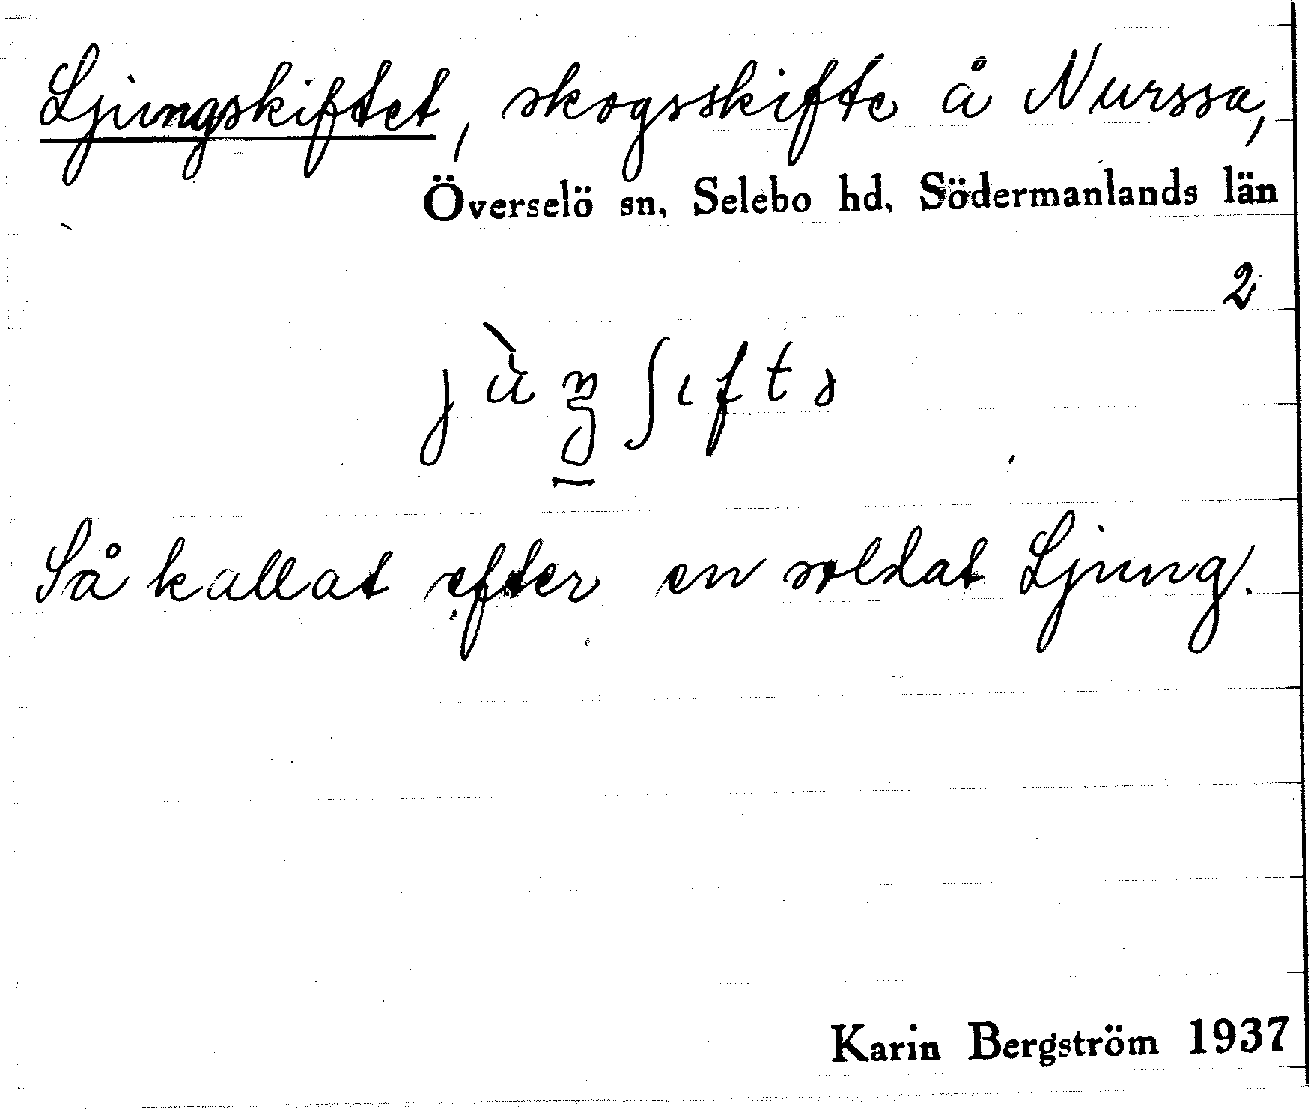 Ljungskiftet, skogsskifte å Nurssa,
Överselö sn, Selebo hd, Södermanlands län
2
jùŋʃɩftə
Så kallat efter en soldat Ljung.
Karin Bergström 1937